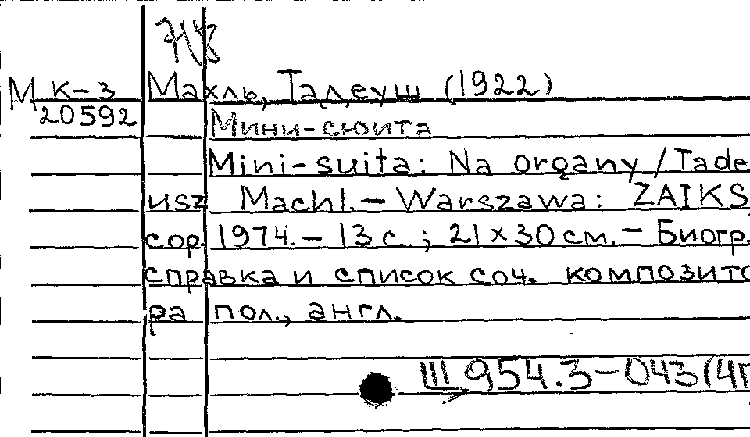 НЗ
М К-3 Махль, Тадеуш (1922)
20592 Мини-сюита
Mini-suita: Na organy / Tade
usz Machl. – Warszawa: ZAIKS,
cop. 1974. – 13 с.; 21 x 30 см. – Биогр.
справка и список соч. композито
ра пол., англ.
Ш 954.3-043(4П